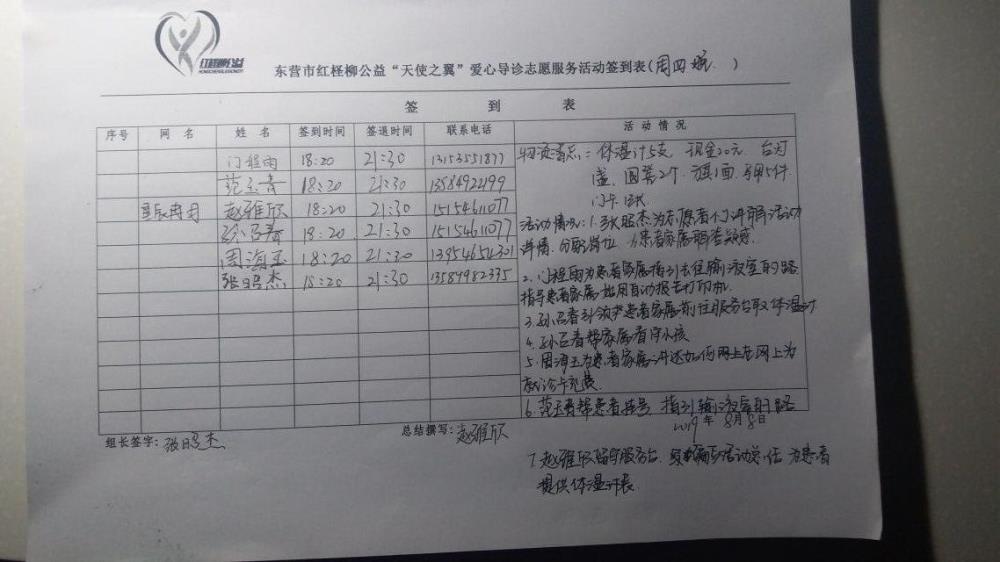 红柽柳公益
东营市红柽柳公益“天使之翼”爱心导诊志愿服务活动签到表(周四晚 )
签 到 表
序号 网 名 姓 名 签到时间 签退时间 联系电话 活 动 情 况
门程雨 18:20 21:30 13153551877
范玉青 18:20 21:30 13584922199
赵雅欣 18:20 21:30 15154611077
孙召春 18:20 21:30 15154611077
周海玉 18:20 21:30 13954654301
张昭杰 18:20 21:30 13589982335
体温计5支 现金20元 台灯
盏 圆凳2个 旗1面 5件
活动情况:1.张昭杰为志愿者们讲解活动
详情,分配岗位,为患者家属解答疑惑.
2.门程雨为患者家属指引去往输液室的路
指导患者家属 使用自动报告打印机.
3.孙召春引领患者家属前往服务台取体温计
4.孙召春帮家属看守小孩
5.周海玉为患者家属讲述如何 在网上为
就诊卡充费.
6.范玉青帮患者挂号 指引输液室的路
2019年8月8日
组长签字:张昭杰 总结撰写:赵雅欣
7.赵雅欣留守服务台 活动总结 为患者
提供体温计表